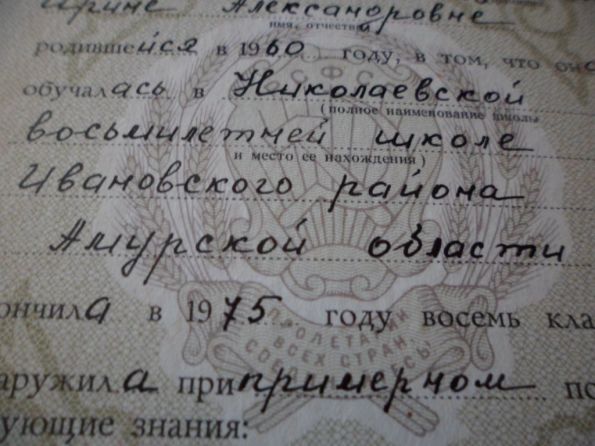 Ирине Александровне
имя, отчество
родившейся в 1960 году, в том, что она
обучалась в Николаевской
(полное наименование школы
восьмилетней школе
и место ее нахождения)
Ивановского района
Амурской области
ончила в 1975 году восемь кла
ПРОЛЕТАРИИ
ВСЕХ СТРАН,
аружила при примерном по
ующие знания: